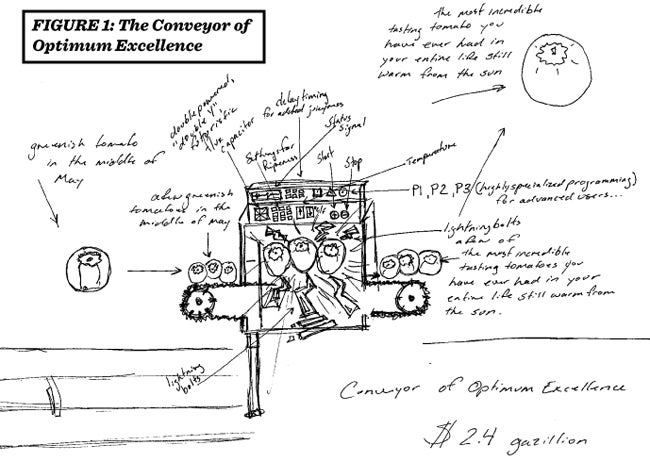 FIGURE 1: The Conveyor of
Optimum Excellence
the most incredible
tasting tomato you
have ever had in
your entire life still
warm from the sun
greenish tomato
in the middle of
May
a few greenish
tomatoes in the
middle of may
double powered,
"double y"
flux
capacitor
Settings for
Ripeness
delay timing
for added juicyness
Status
Signal
Start
Stop
Temperature
P1, P2, P3 (highly specialized programming)
for advanced users...
lightning bolts
a few of
the most incredible
tasting tomatoes you
have ever had in your
entire life still warm from
the sun.
lightning
bolts
Conveyor of Optimum Excellence
$ 2.4 gazillion